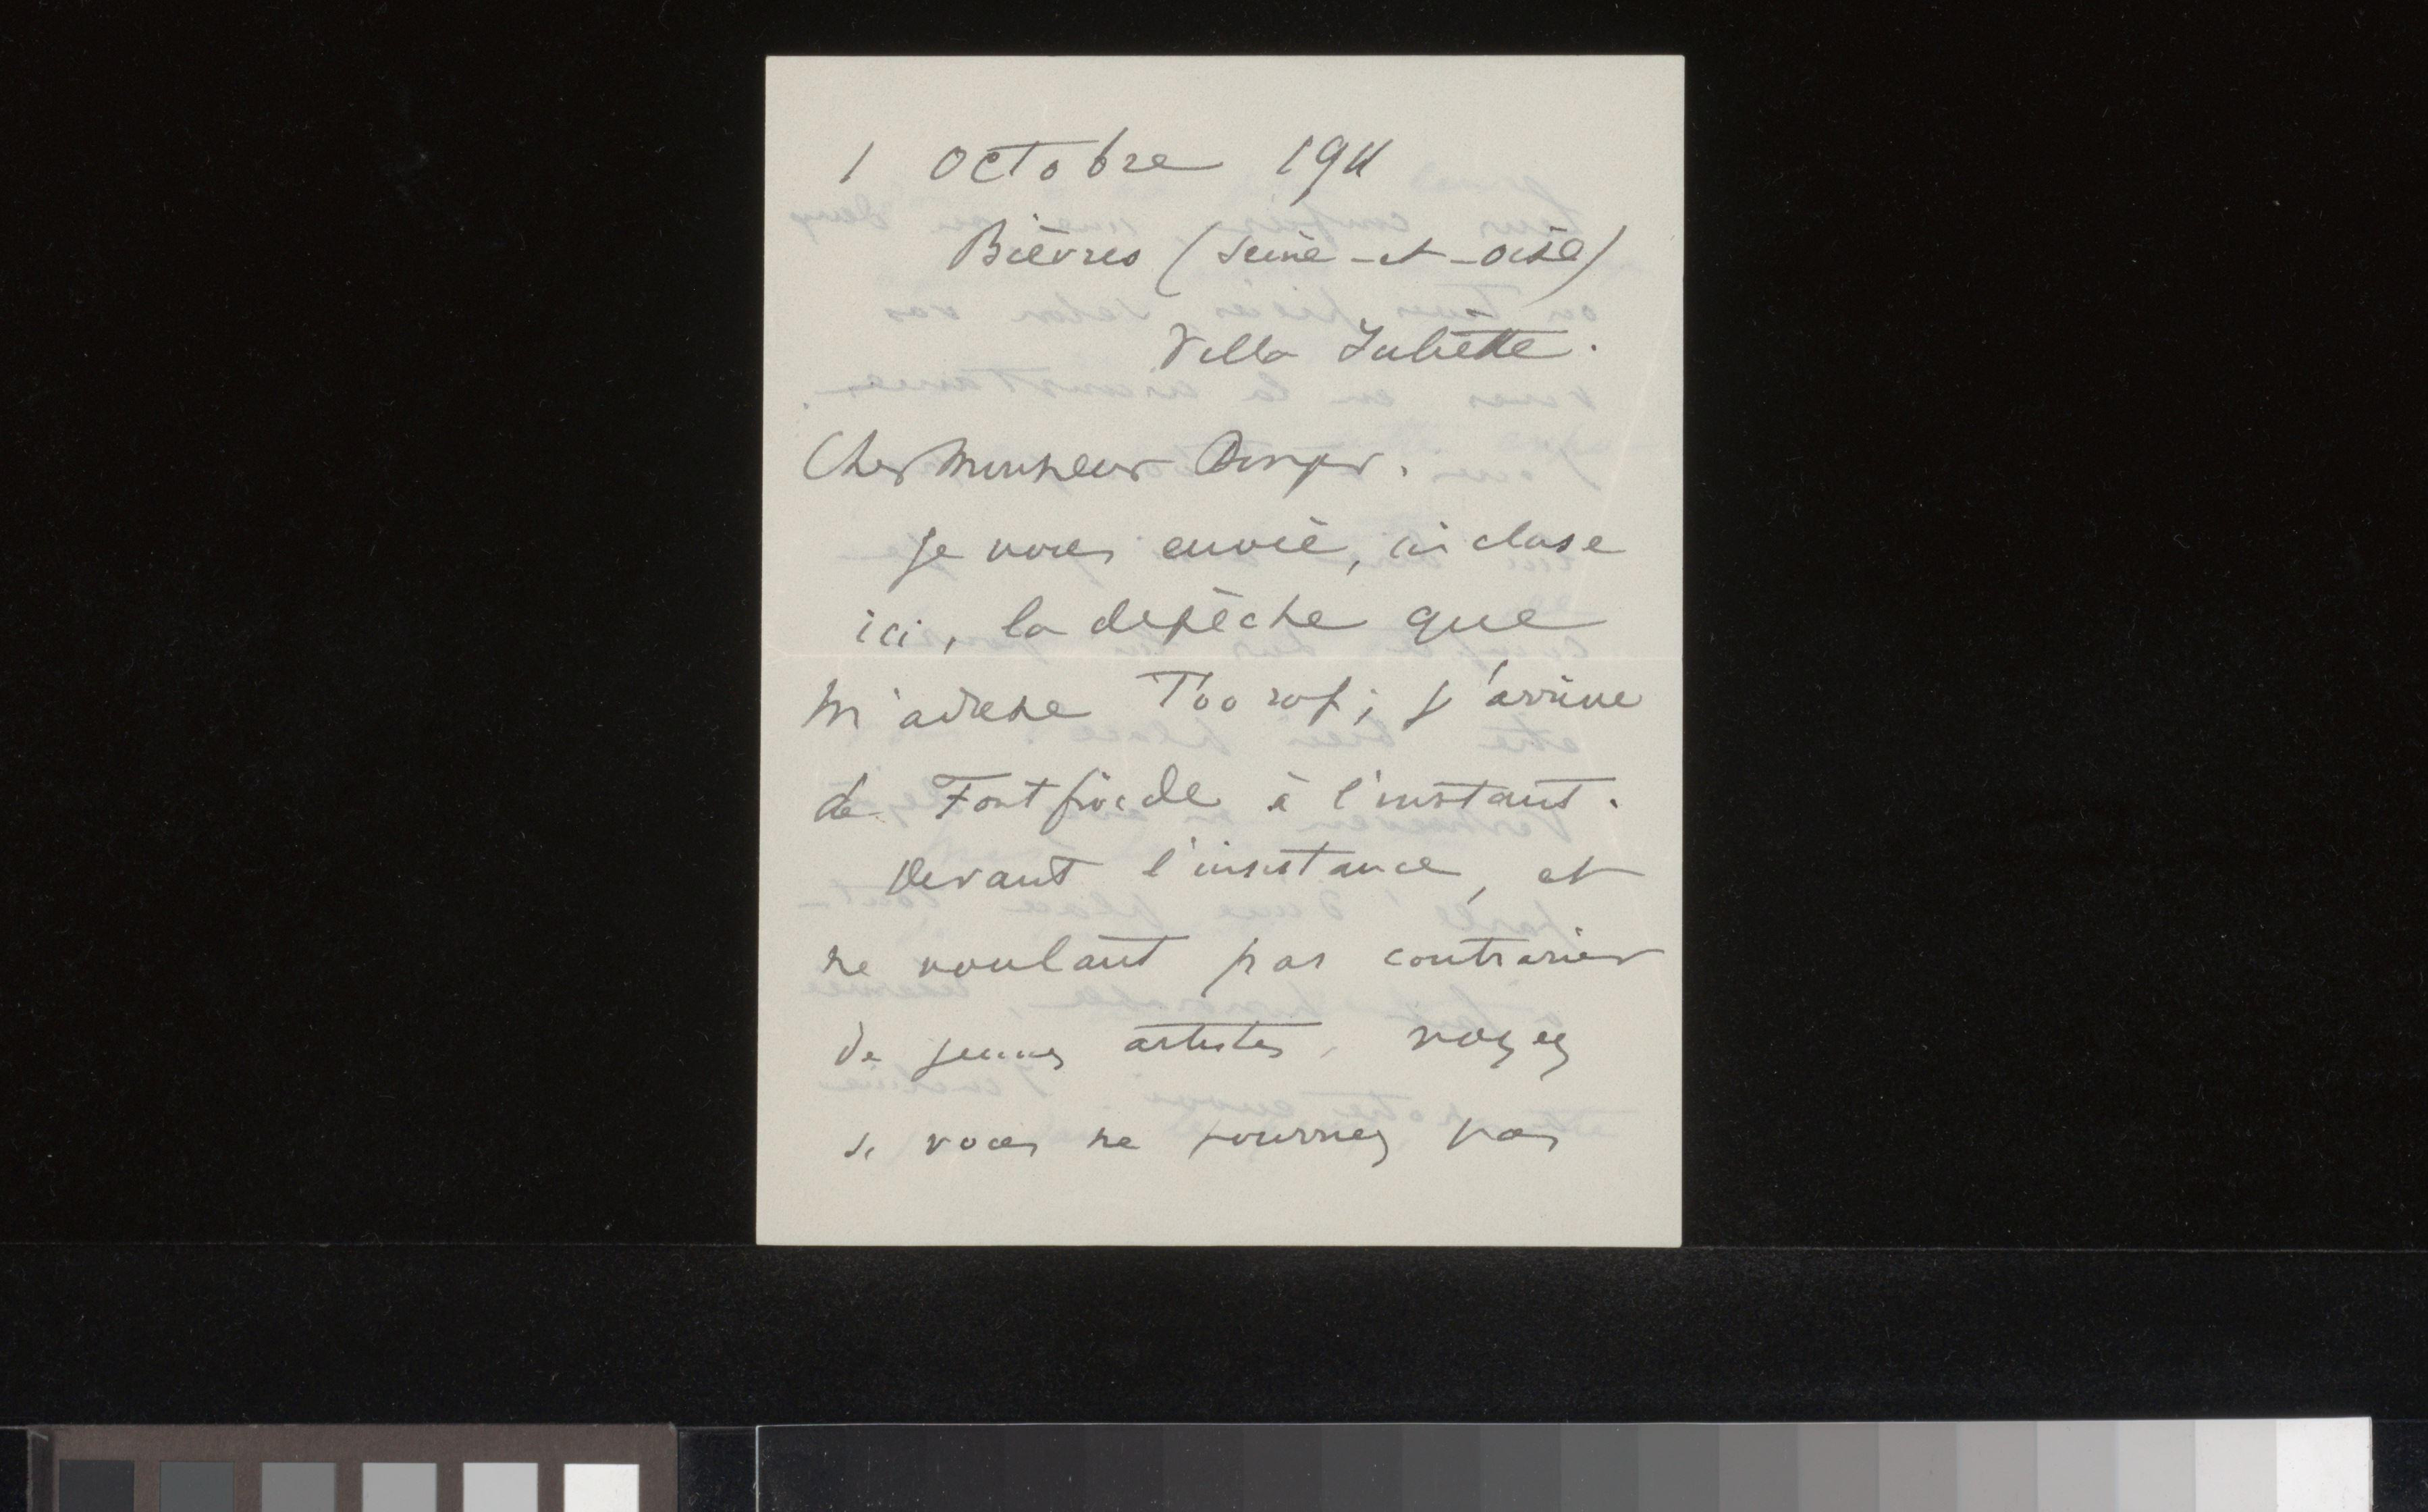 1 Octobre 1911
Bièvres (Seine-et-Oise)
Villa Juliette.
Cher Monsieur Bonger.
Je vous envoie, inclose
ici, la depèche que
m'adresse Toorop; j'arrive
de Fontfroide à l'instant.
Devant l'insistance, et
ne voulant pas contrarier
de jeunes artistes, voyez
si vous ne pourriez pas